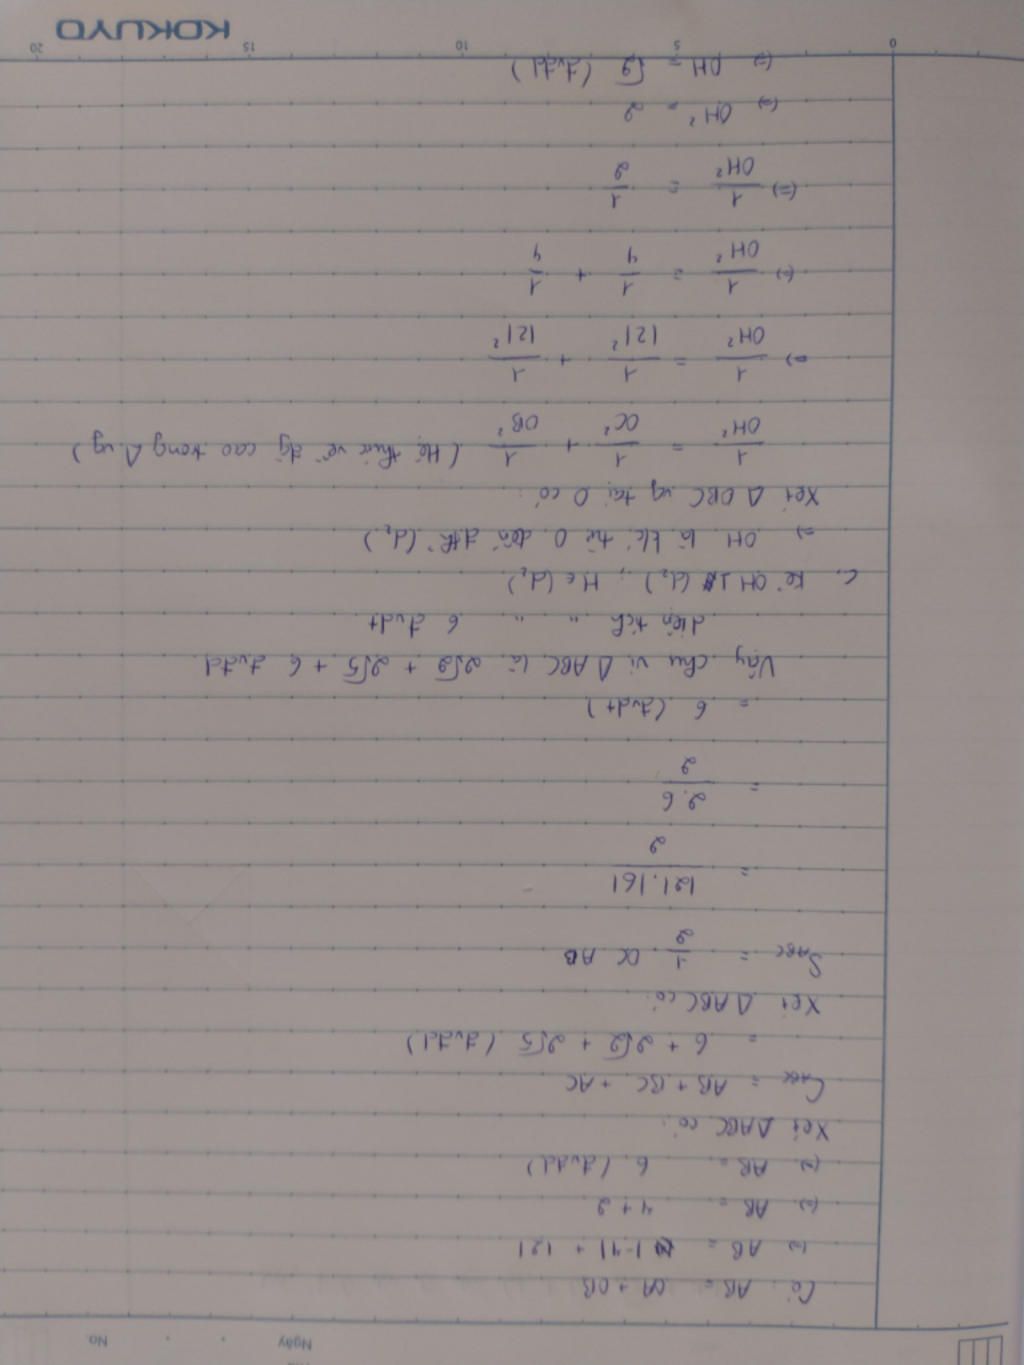 Ngày No.
Có: AB = OA + OB
(=) AB = |-4| + |2|
(=) AB = 4 + 2
(=) AB = 6 (đvđd)
Xét Δ ABC có:
C ABC = AB + BC + AC
= 6 + 2√2 + 2√5 (đvđd)
Xét Δ ABC có:
S ABC = 1/2 . OC . AB
= |2|.|6| / 2
= 2.6 / 2
= 6 (đvdt)
Vậy chu vi Δ ABC là 2√2 + 2√5 + 6 đvđd
diện tích " " 6 đvdt
c. Kẻ OH ⊥ (d₂) ; H ∈ (d₂)
=> OH là k/c từ O đến đth (d₂)
Xét Δ OBC vg tại O có:
1/OH² = 1/OC² + 1/OB² (Hệ thức về đg cao trong Δ vg)
=> 1/OH² = 1/|2|² + 1/|2|²
(=) 1/OH² = 1/4 + 1/4
(=) 1/OH² = 1/2
(=) OH² = 2
(=) OH = √2 (đvđd)
0 5 10 15 20
KOKUYO